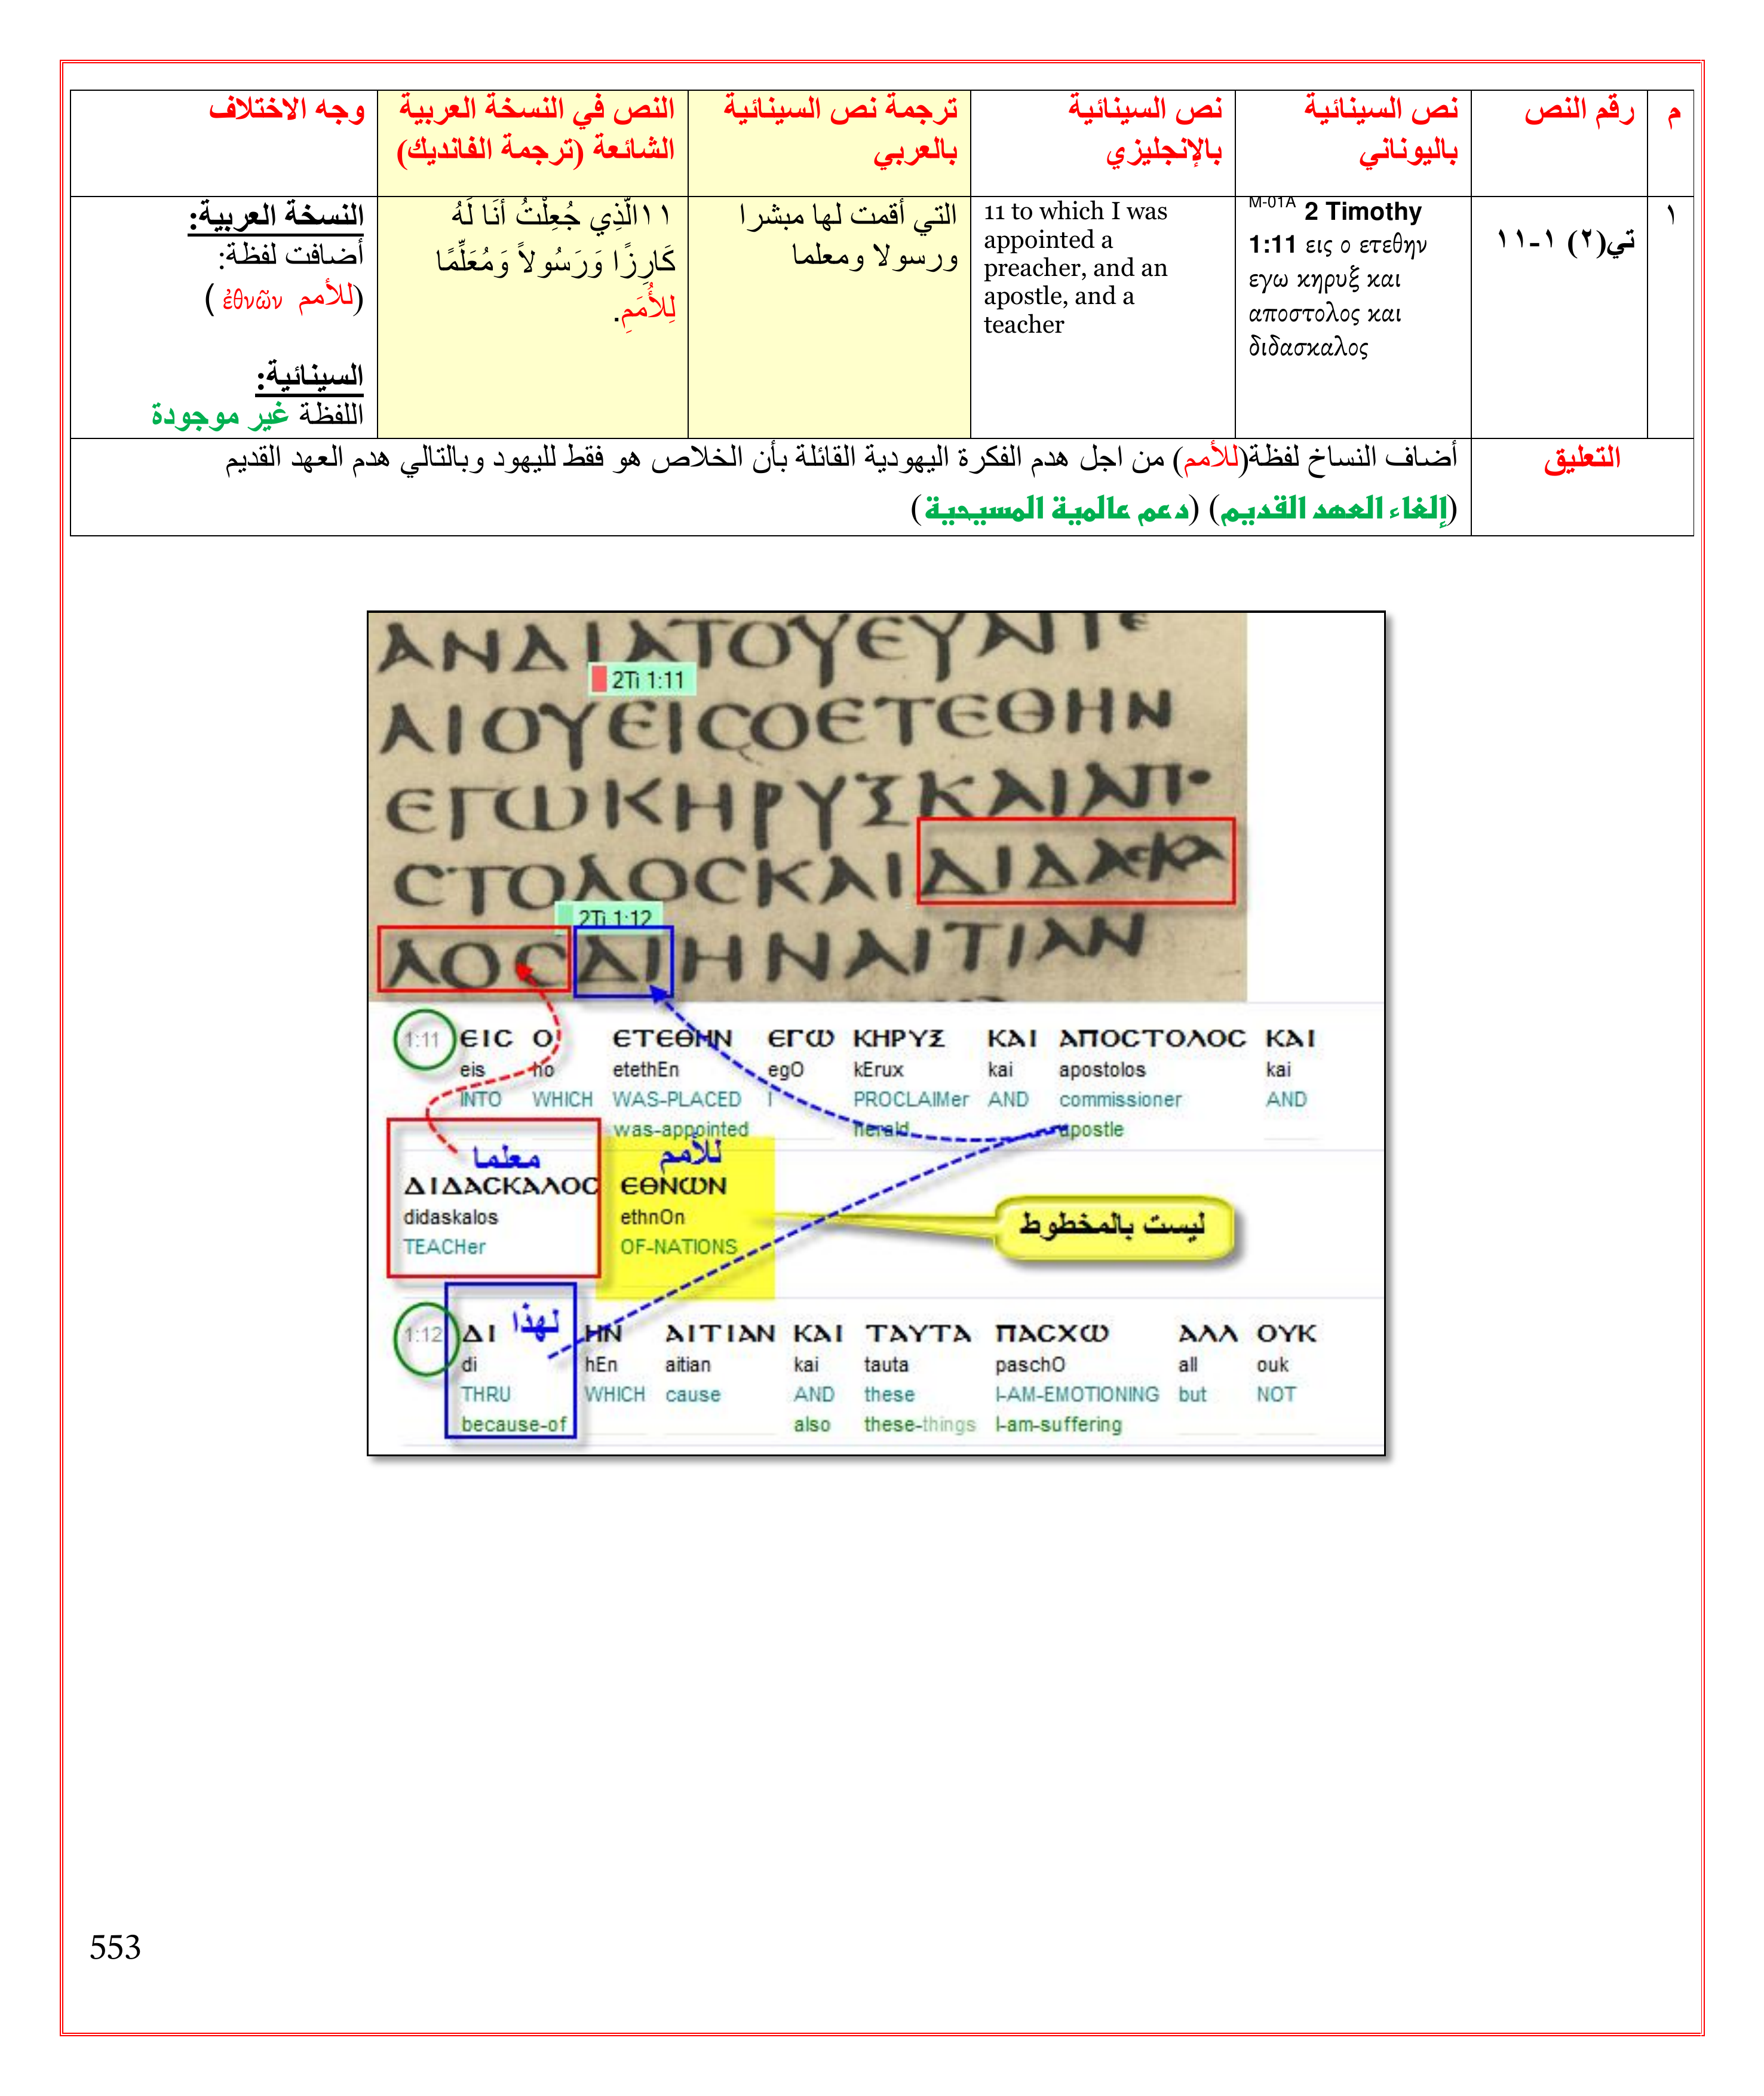 م
رقم النص
نص السينائية
باليوناني
نص السينائية
بالإنجليزي
ترجمة نص السينائية
بالعربي
النص في النسخة العربية
الشائعة (ترجمة الفانديك)
وجه الاختلاف
١
تي(٢) ١-١١
M-01A 2 Timothy
1:11 εις ο ετεθην
εγω κηρυξ και
αποστολος και
διδασκαλος
11 to which I was
appointed a
preacher, and an
apostle, and a
teacher
التي أقمت لها مبشرا
ورسولا ومعلما
١١الَّذِي جُعِلْتُ أَنَا لَهُ
كَارِزًا وَرَسُولاً وَمُعَلِّمًا
لِلأُمَمِ.
النسخة العربية:
أضافت لفظة:
(للأمم ἐθνῶν )
السينائية:
اللفظة غير موجودة
التعليق
أضاف النساخ لفظة(للأمم) من اجل هدم الفكرة اليهودية القائلة بأن الخلاص هو فقط لليهود وبالتالي هدم العهد القديم
(إلغاء العهد القديم) (دعم عالمية المسيحية)
ΑΝΔΙΑΤΟΥΕΥΑΓΓΕ
2Ti 1:11
ΛΙΟΥΕΙCΟΕΤΕΘΗΝ
ΕΓΩΚΗΡΥΞΚΑΙΑΠΟ
CΤΟΛΟCΚΑΙΔΙΔΑCΚΑ
2Ti 1:12
ΛΟCΔΙΗΝΑΙΤΙΑΝ
1:11 ΕΙC Ο ΕΤΕΘΗΝ ΕΓΩ ΚΗΡΥΞ ΚΑΙ ΑΠΟCΤΟΛΟC ΚΑΙ
eis ho etethEn egO kErux kai apostolos kai
INTO WHICH WAS-PLACED I PROCLAIMer AND commissioner AND
was-appointed herald apostle
معلما للأمم
ΔΙΔΑCΚΑΛΟC ΕΘΝΩΝ
didaskalos ethnOn
TEACHer OF-NATIONS
ليست بالمخطوط
لهذا
1:12 ΔΙ ΗΝ ΑΙΤΙΑΝ ΚΑΙ ΤΑΥΤΑ ΠΑCΧΩ ΑΛΛ ΟΥΚ
di hEn aitian kai tauta paschO all ouk
THRU WHICH cause AND these I-AM-EMOTIONING but NOT
because-of also these-things I-am-suffering
553